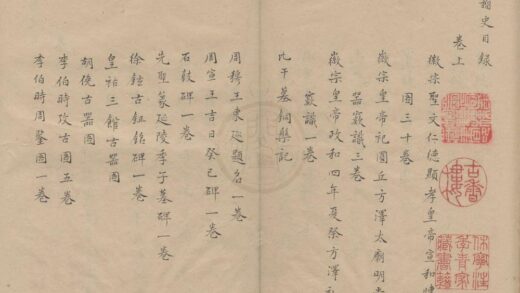 籀史目錄
卷上
徽宗聖文仁德顯孝皇帝宣和
圖三十卷
徽宗皇帝祀圓丘方澤太廟明
器欵識三卷
徽宗皇帝政和四年夏祭方澤
欵識一卷
比干墓銅槃記
周穆王東巡題名一卷
周宣王吉日癸巳碑一卷
石鼓碑一卷
先聖篆延陵季子墓碑一卷
徐鉉古鉦銘碑一卷
皇祐三館古器圖
胡俛古器圖
李伯時攷古圖五卷
李伯時周鑒圖一卷
古香樓
休寧汪
季青家
藏書籍